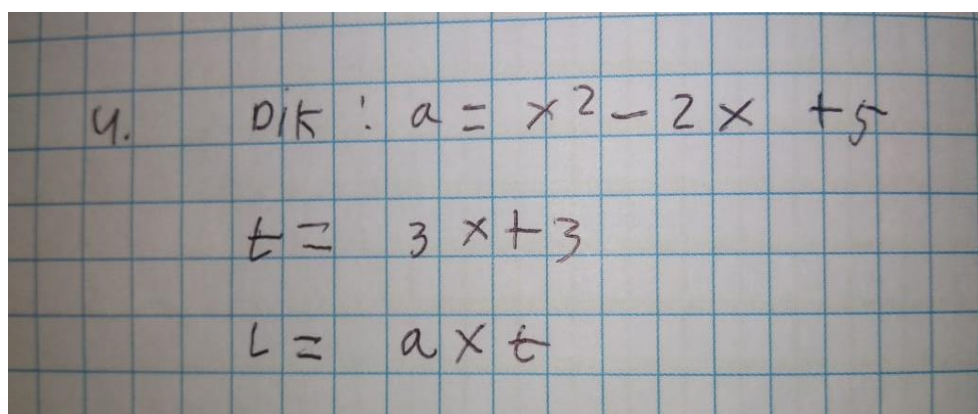 4. Dik : a = x² - 2x + 5
t = 3x + 3
L = a x t